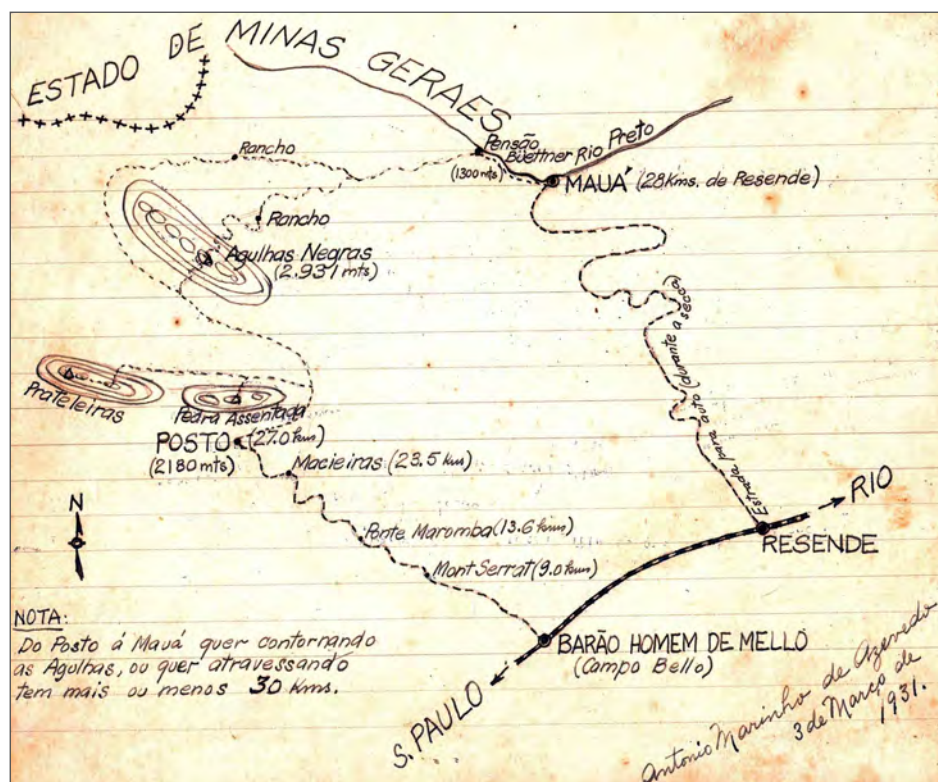 ESTADO DE MINAS GERAES
Rancho
Pensão
Büettner
Rio Preto
(1300 mts)
MAUÁ (28 Kms. de Resende)
Rancho
Agulhas Negras
(2.931 mts)
Estrada para auto (durante a secca)
Prateleiras
Pedra Assentada
POSTO (27.0 kms)
(2180 mts)
Macieiras (23.5 km)
N
Ponte Maromba (13.6 kms)
Mont Serrat (9.0 kms)
RIO
RESENDE
BARÃO HOMEM DE MELLO
(Campo Bello)
S. PAULO
NOTA:
Do Posto á Mauá quer contornando
as Agulhas, ou quer atravessando
tem mais ou menos 30 Kms.
Antonio Marinho de Azevedo
3 de Março de
1931.